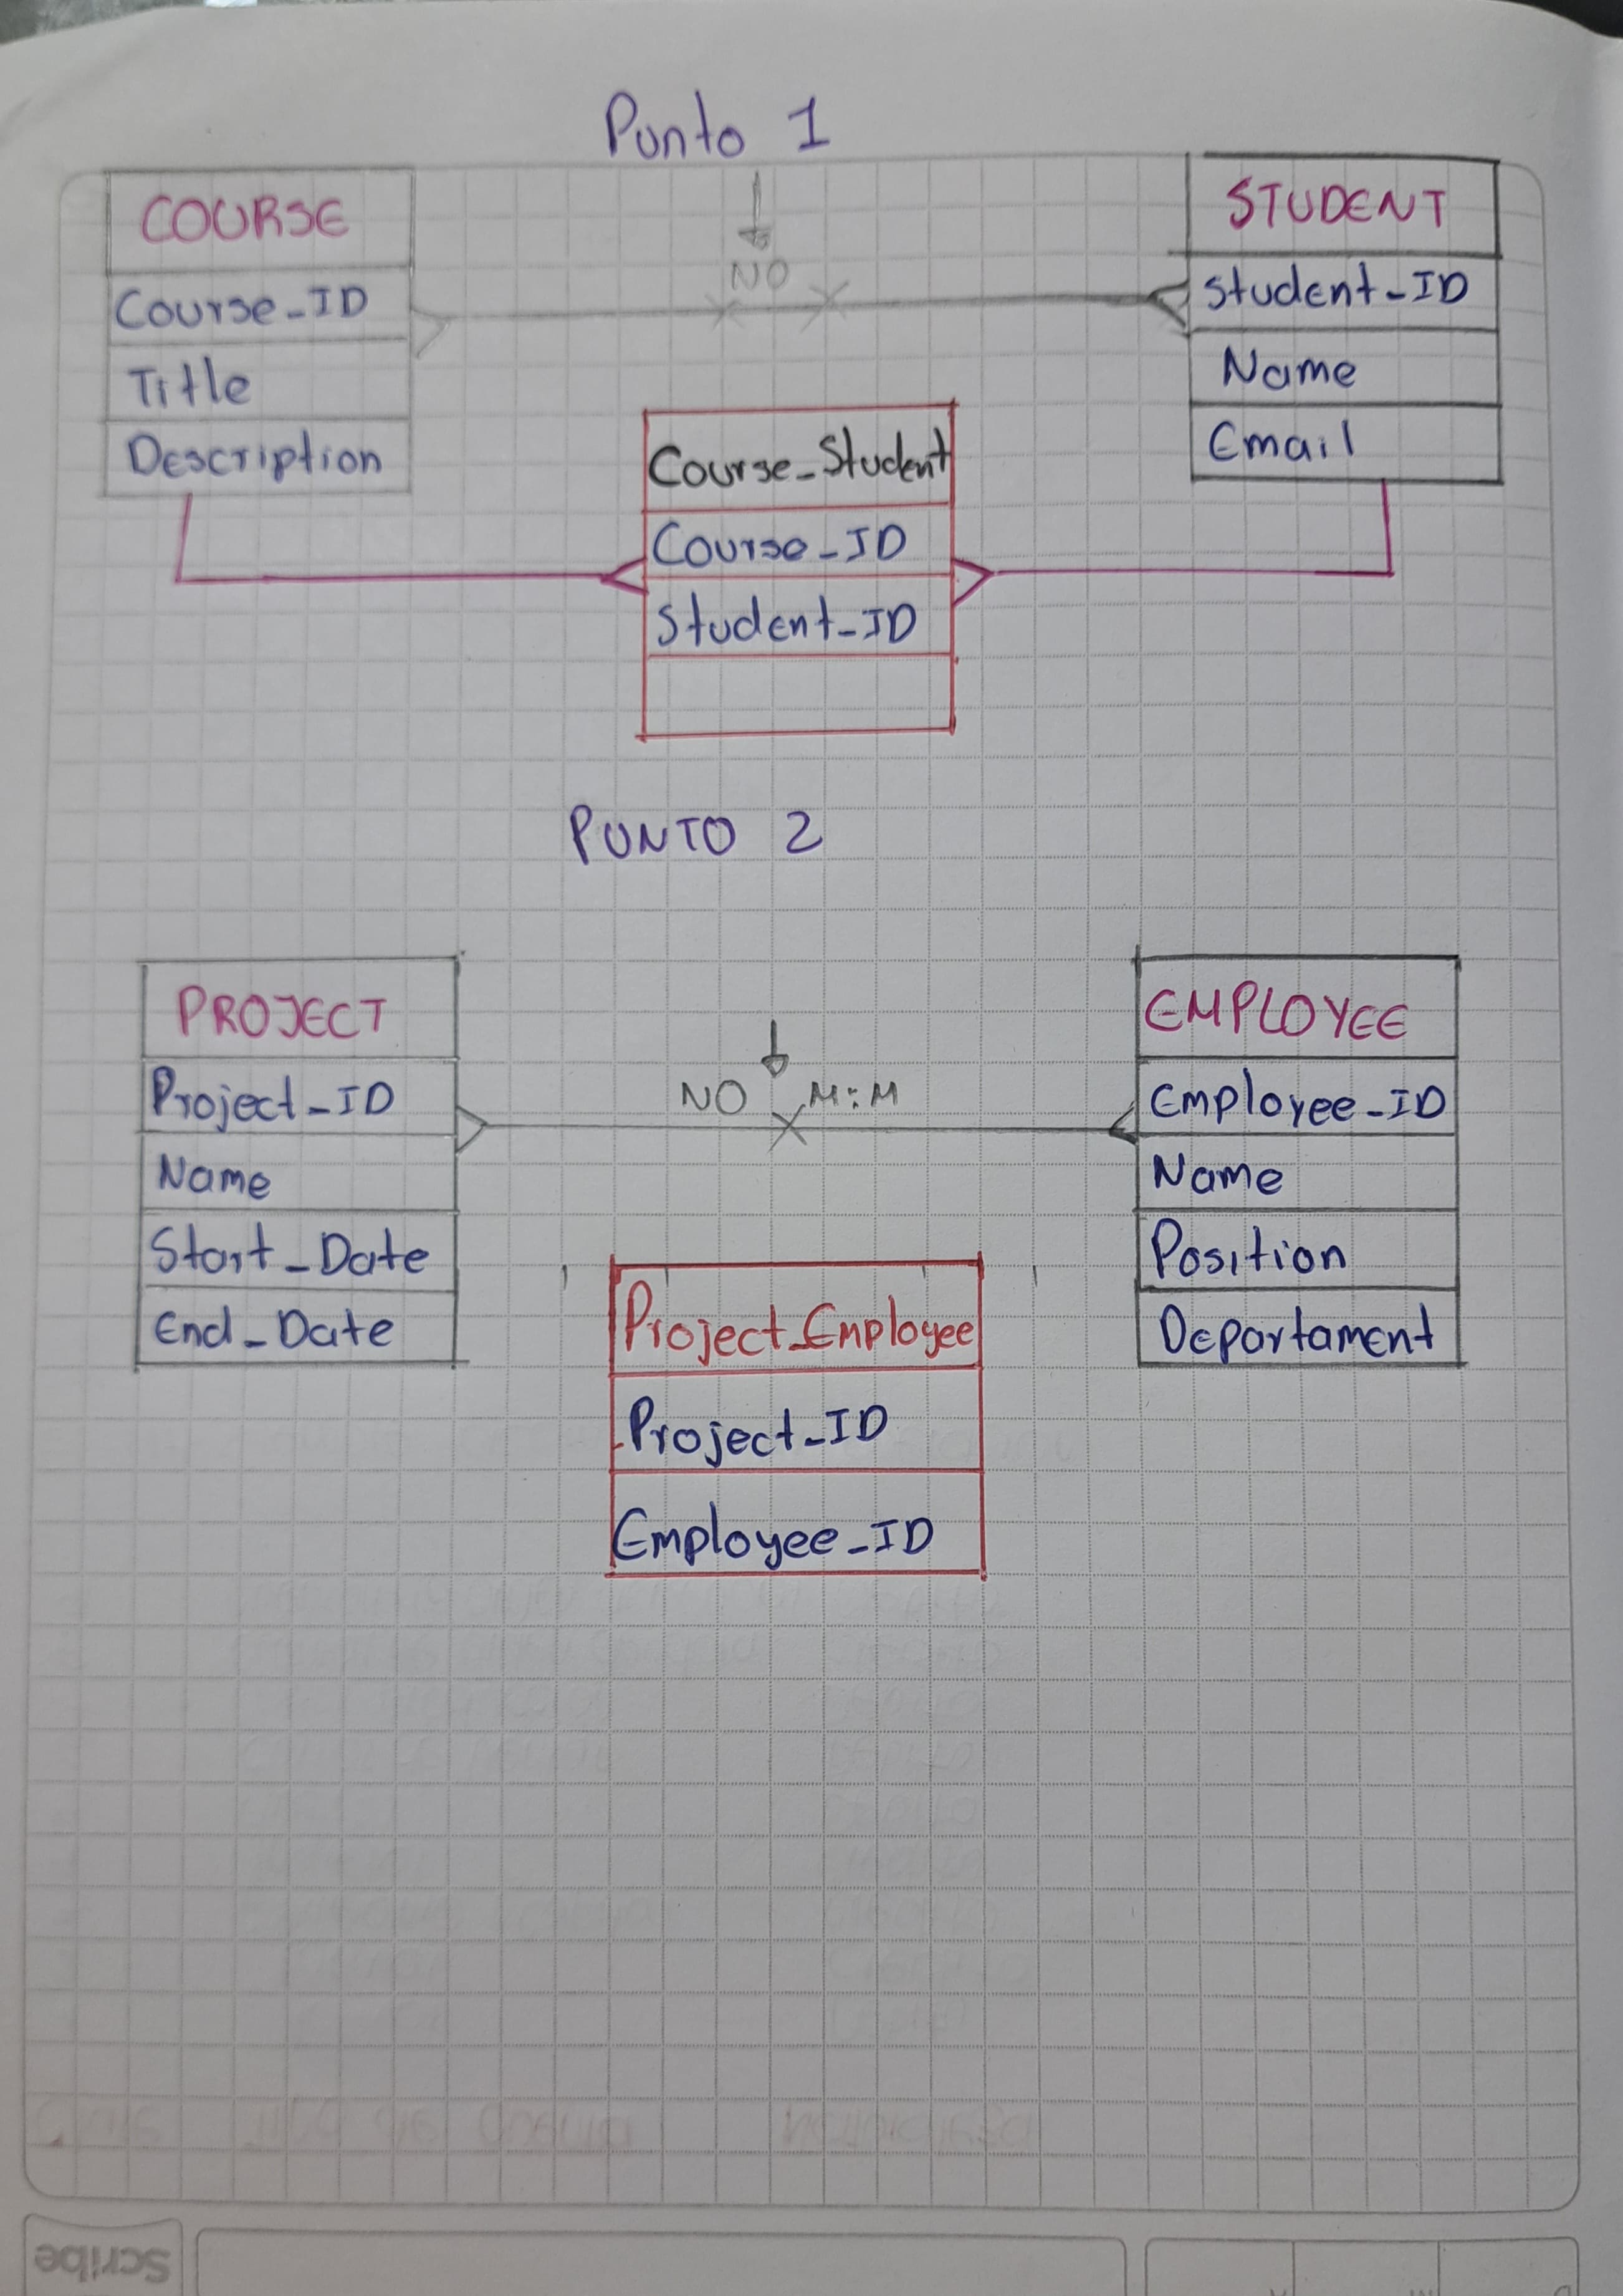 Punto 1
COURSE
Course_ID
Title
Description
NO
STUDENT
Student_ID
Name
Email
Course_Student
Course_ID
Student_ID
PUNTO 2
PROJECT
Project_ID
Name
Start_Date
End_Date
NO M:M
EMPLOYEE
Employee_ID
Name
Position
Departament
Project_Employee
Project_ID
Employee_ID
Scribe